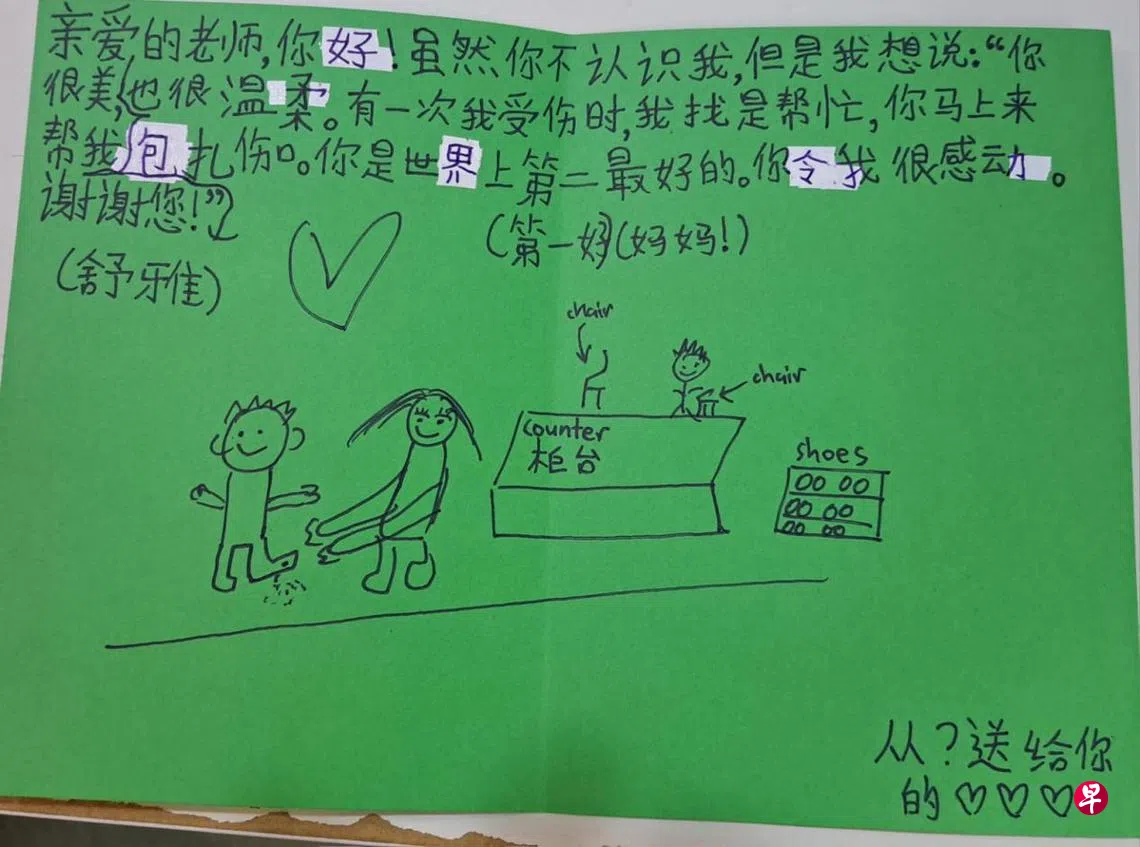 亲爱的老师,你好!虽然你不认识我,但是我想说:“你
很美,也很温柔。有一次我受伤时,我找是帮忙,你马上来
帮我包扎伤口。你是世界上第二最好的。你令我很感动。
谢谢您!”
(第一好(妈妈!)
(舒予牙佳)
chair
chair
counter
柜台
shoes
从?送给你
的♡♡♡
早